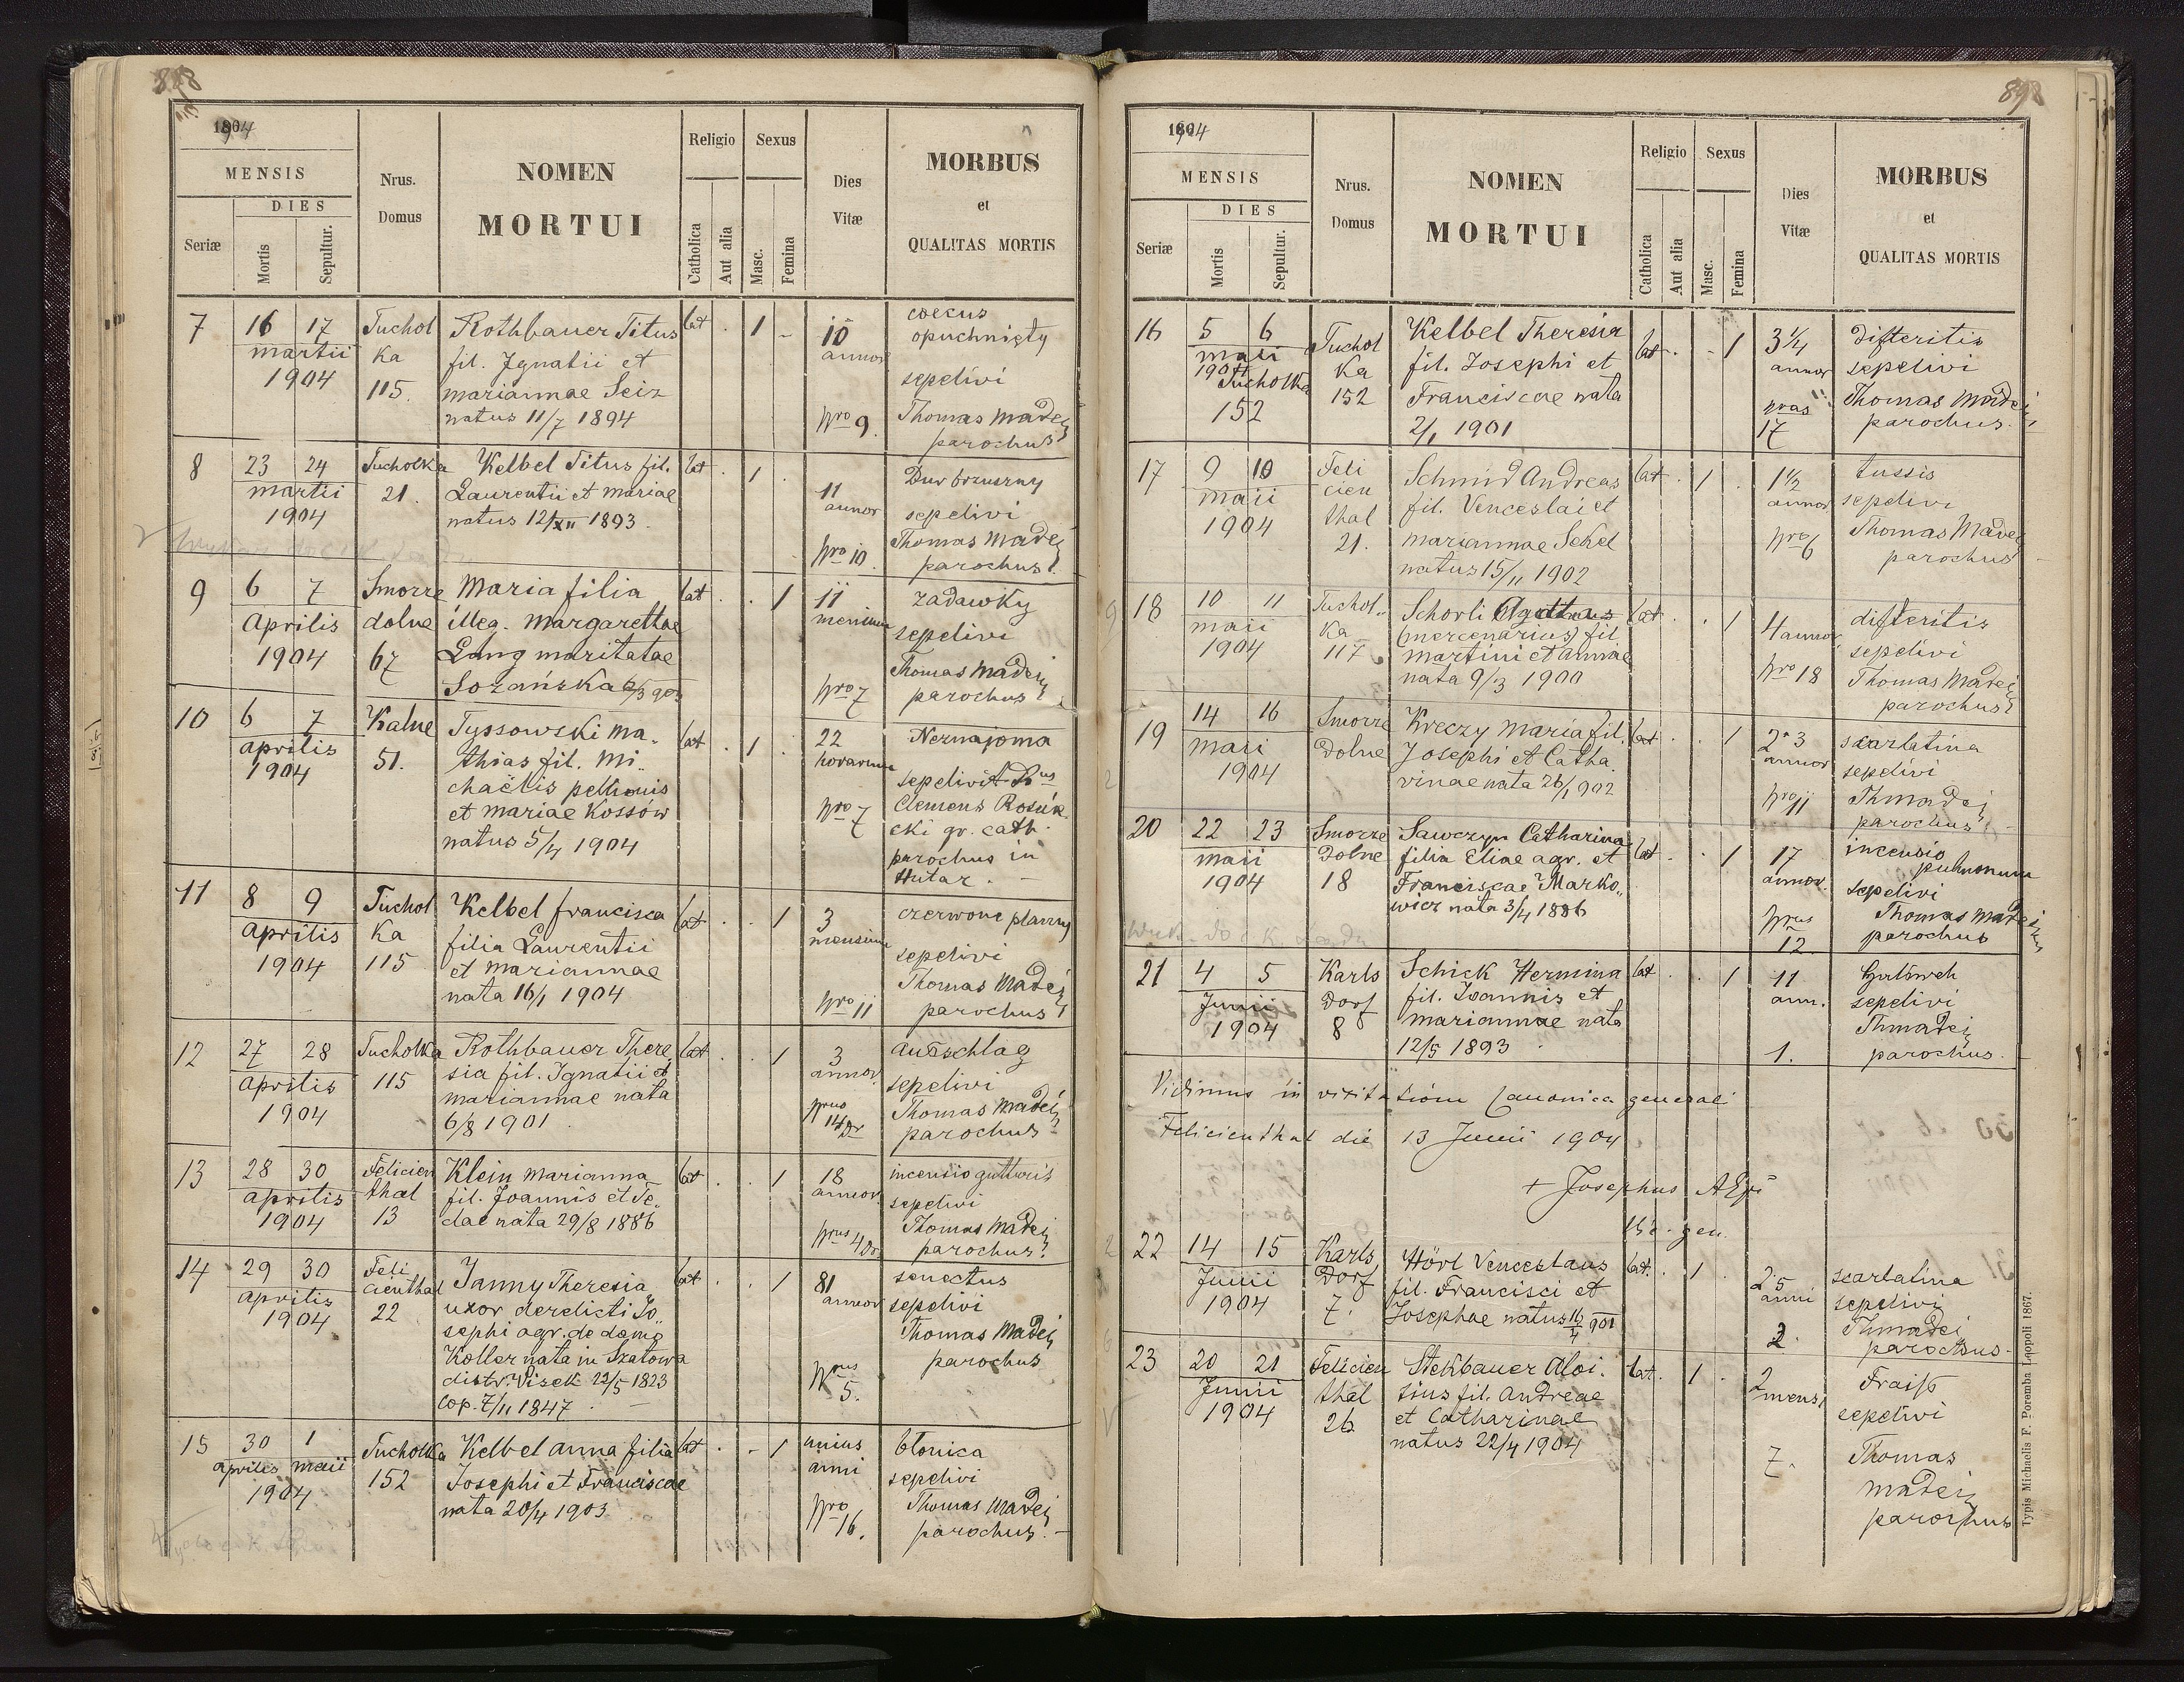 1904
MENSIS
DIES
Seriæ
Mortis
Sepultur.
Nrus.
Domus
NOMEN
MORTUI
Religio
Catholica
Aut alia
Sexus
Masc.
Femina
Dies
Vitæ
MORBUS
et
QUALITAS MORTIS
7 16 17 Tuchol Rothbauer Titus lat 1 10 coecus
martii ka fil. Ignatii et annor opuchnięty
1904 115. mariannae Seiz sepelivi
natus 11/7 1894 Nro 9. Thomas Madej
parochus
8 23 24 Tucholka Kelbel Titus fil. lat 1 11 Dur brzuszny
martii 21. Laurentii et mariae annor sepelivi
1904 natus 12/XII 1893. Nro 10. Thomas Madej
parochus
9 6 7 Smorze Maria filia lat 1 11 zadawky
Aprilis dolne illeg. Margarettae mensium sepelivi
1904 67 Lang maritatae Thomas Madej
Sozańska Nro 7 parochus
10 6 7 Kalne Tyssowski Ma- lat 1 22 Nieznajoma
aprilis 51. thias fil. Mi- horarum sepelivit
1904 chaëlis pellionis Nro 7 Clemens
et Mariae Kossów cki gr. cath.
natus 5/4 1904 parochus in
Hutar.
11 8 9 Tuchol Kelbel Francisca lat 1 3 czerwone plamy
aprilis ka filia Laurentii mensium sepelivi
1904 115 et mariannae Thomas Madej
nata 16/1 1904 Nro 11 parochus
12 27 28 Tucholka Rothbauer There- lat 1 3 Ausschlag
aprilis 115 sia fil. Ignatii et annor. sepelivi
1904 mariannae nata Nrus 14 Thomas Madej
6/8 1901 parochus
13 28 30 Felicien Klein Marianna lat 1 18 incensio gutturis
aprilis thal fil. Joannis et annor. sepelivi
1904 13 dae nata 29/8 1886 Nrus 4 Thomas Madej
parochus
14 29 30 Feli Janny Theresia lat 1 81 senectus
aprilis cienthal uxor derelicti Jo- annor sepelivi
1904 22 sephi agr. de domo Thomas Madej
Koller nata in Szatowa Nrus 5. parochus
distr. Visek 22/5 1823
cop. 7/11 1847
15 30 1 Tucholka Kelbel Anna filia lat 1 unius błonica
aprilis maii 152 Josephi et Franciscae anni sepelivi
1904 nata 20/4 1903 Nro 16. Thomas Madej
parochus.
1904
MENSIS
DIES
Seriæ
Mortis
Sepultur.
Nrus.
Domus
NOMEN
MORTUI
Religio
Catholica
Aut alia
Sexus
Masc.
Femina
Dies
Vitæ
MORBUS
et
QUALITAS MORTIS
16 5 6 Tuchol Kelbel Theresia lat 1 3 1/4 Difteritis
maii ka fil. Josephi et annor sepelivi
1904 152 Franciscae nata Nrus 17 Thomas Madej
Tucholka 2/1 1901 parochus.
152
17 9 10 Feli Schmid Andreas lat 1 1 1/2 tussis
maii cien fil. Venceslai et annor sepelivi
1904 thal mariannae Sekel Nro 6 Thomas Madej
21. natus 15/11 1902 parochus
18 10 11 Tuchol- Schorli lat 1 4 annor difteritis
maii ka (mercenarius) fil. sepelivi
1904 117 martini et annae Nro 18 Thomas Madej
nata 9/3 1900 parochus
19 14 16 Smorze Kreczy Maria fil. lat 1 2 3 annor scarlatina
maii Dolne Josephi et Catha- sepelivi
1904 rinae nata 26/1 902 Nro 11 Th Madej
parochus
20 22 23 Smorze Sawczyn Catharina lat 1 17 incensio pulmonum
maii Dolne filia Eliae agr. et annor. sepelivi
1904 18 Franciscae Marko- Nrus 12. Thomas Madej
wicz nata 3/4 1886 parochus
21 4 5 Karls Schick Hermina lat 1 11
Junii Dorf fil. Joannis et ann. sepelivi
1904 8 mariannae nata Th Madej
12/5 1893 1. parochus.
Vidimus in visitatione Canonica generali
Felicienthal die 13 Junii 1904
+ Josephus
22 14 15 Karls Hörl Venceslaus lat. 1 2 5 anni scarlatina
Junii Dorf fil. Francisci et sepelivi
1904 7. Josephae natus 901 2. Th Madej
parochus.
23 20 21 Felicien Stekbauer Aloi- lat. 1 2 mens. Fraiß
Junii thal sius fil. Andreae sepelivi
1904 26 et Catharinae 7. Thomas
natus 22/4 1904 Madej
parochus
Typis Michaelis F. Poremba Leopoli 1867.